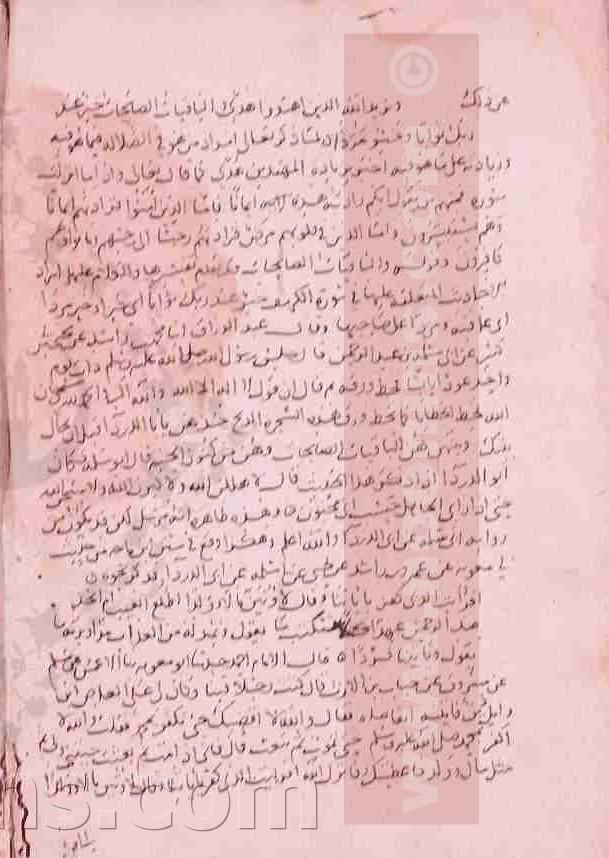 عن ذلك ويزيد الله الذين اهتدوا هدى والباقيات الصالحات خير عند
ربك ثوابا وخير مردا لما ذكر تعالى امداد من هو في الضلالة فيما هو فيه
وزيادته على ما هو فيه اخبر بزيادة المهتدين هدى كما قال تعالى واذا ما انزلت
سورة فمنهم من يقول ايكم زادته هذه ايمانا فاما الذين امنوا فزادتهم ايمانا
وهم يستبشرون واما الذين في قلوبهم مرض فزادتهم رجسا الى رجسهم وماتوا وهم
كافرون وقوله والباقيات الصالحات قد تقدم تفسيرها والكلام عليها وايراد
الاحاديث المتعلقة بها في سورة الكهف خير عند ربك ثوابا اي جزاء وخير مردا
اي عاقبة ومردا على صاحبها وقال عبد الرزاق انا عمر بن راشد عن يحيى بن
كثير عن ابي سلمة بن عبد الرحمن قال جلس رسول الله صلى الله عليه وسلم ذات يوم
واخذ عودا يابسا فحط ورقه ثم قال ان قول لا اله الا الله والله اكبر والحمد لله وسبحان
الله تحط الخطايا كما تحط ورق هذه الشجرة الريح خذهن يا ابا الدرداء قبل ان يحال
بينك وبينهن هن الباقيات الصالحات وهن من كنوز الجنة قال ابو سلمة فكان
ابو الدرداء اذا ذكر هذا الحديث قال لاهللن الله ولاكبرن الله ولاسبحن الله
حتى اذا راى الجاهل حسب اني مجنون وهذا ظاهره انه مرسل ولكن قد يكون من
رواية ابي سلمة عن ابي الدرداء والله اعلم وهكذا وقع في سنن ابن ماجه من حديث
ابي معوية عن عمر بن راشد عن يحيى عن ابي سلمة عن ابي الدرداء فذكر نحوه
افرايت الذي كفر باياتنا وقال لاوتين مالا وولدا اطلع الغيب ام اتخذ
عند الرحمن عهدا كلا سنكتب ما يقول ونمد له من العذاب مدا ونرثه ما
يقول وياتينا فردا قال الامام احمد حدثنا ابو معوية ثنا الاعمش عن مسلم
عن مسروق عن خباب بن الارت قال كنت رجلا قينا وكان لي على العاص بن
وايل دين فاتيته اتقاضاه فقال والله لا اقضيك حتى تكفر بمحمد فقلت والله لا
اكفر بمحمد صلى الله عليه وسلم حتى تموت ثم تبعث قال فاني اذا مت ثم بعثت جيتني ولي ثم
مال وولد فاعطيتك فانزل الله افرايت الذي كفر باياتنا وقال لاوتين مالا وولدا